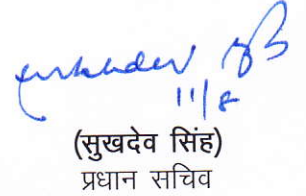 11/8
(सुखदेव सिंह)
प्रधान सचिव